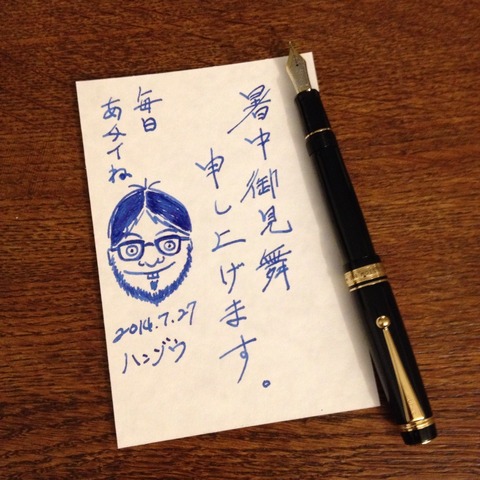 暑中御見舞
申し上げます。
毎日
あチイね
2014.7.27
ハンゾウ